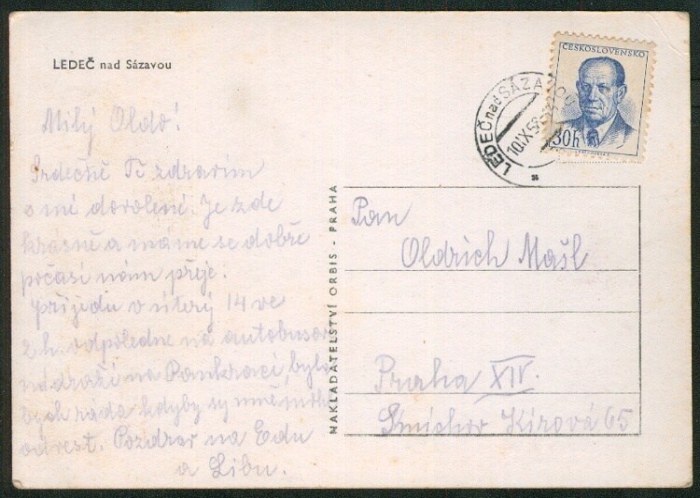 LEDEČ nad Sázavou
ČESKOSLOVENSKO
30h
LEDEČ nad SÁZAVOU
Milý Oldo!
Srdečně Tě zdravím
z mé dovolené. Je zde
krásně a máme se dobře
počasí nám přeje.
Přijedu v úterý 14 ve
2 h. odpoledne na autobusov
nádraží na Pankráci, byla
bych ráda kdyby sy mně mohl
odvest. Pozdrav na Edu
a Libu.
NAKLADATELSTVÍ ORBIS - PRAHA
Pan
Oldrich Mašl
Praha XIV.
Smíchov Kírová 65